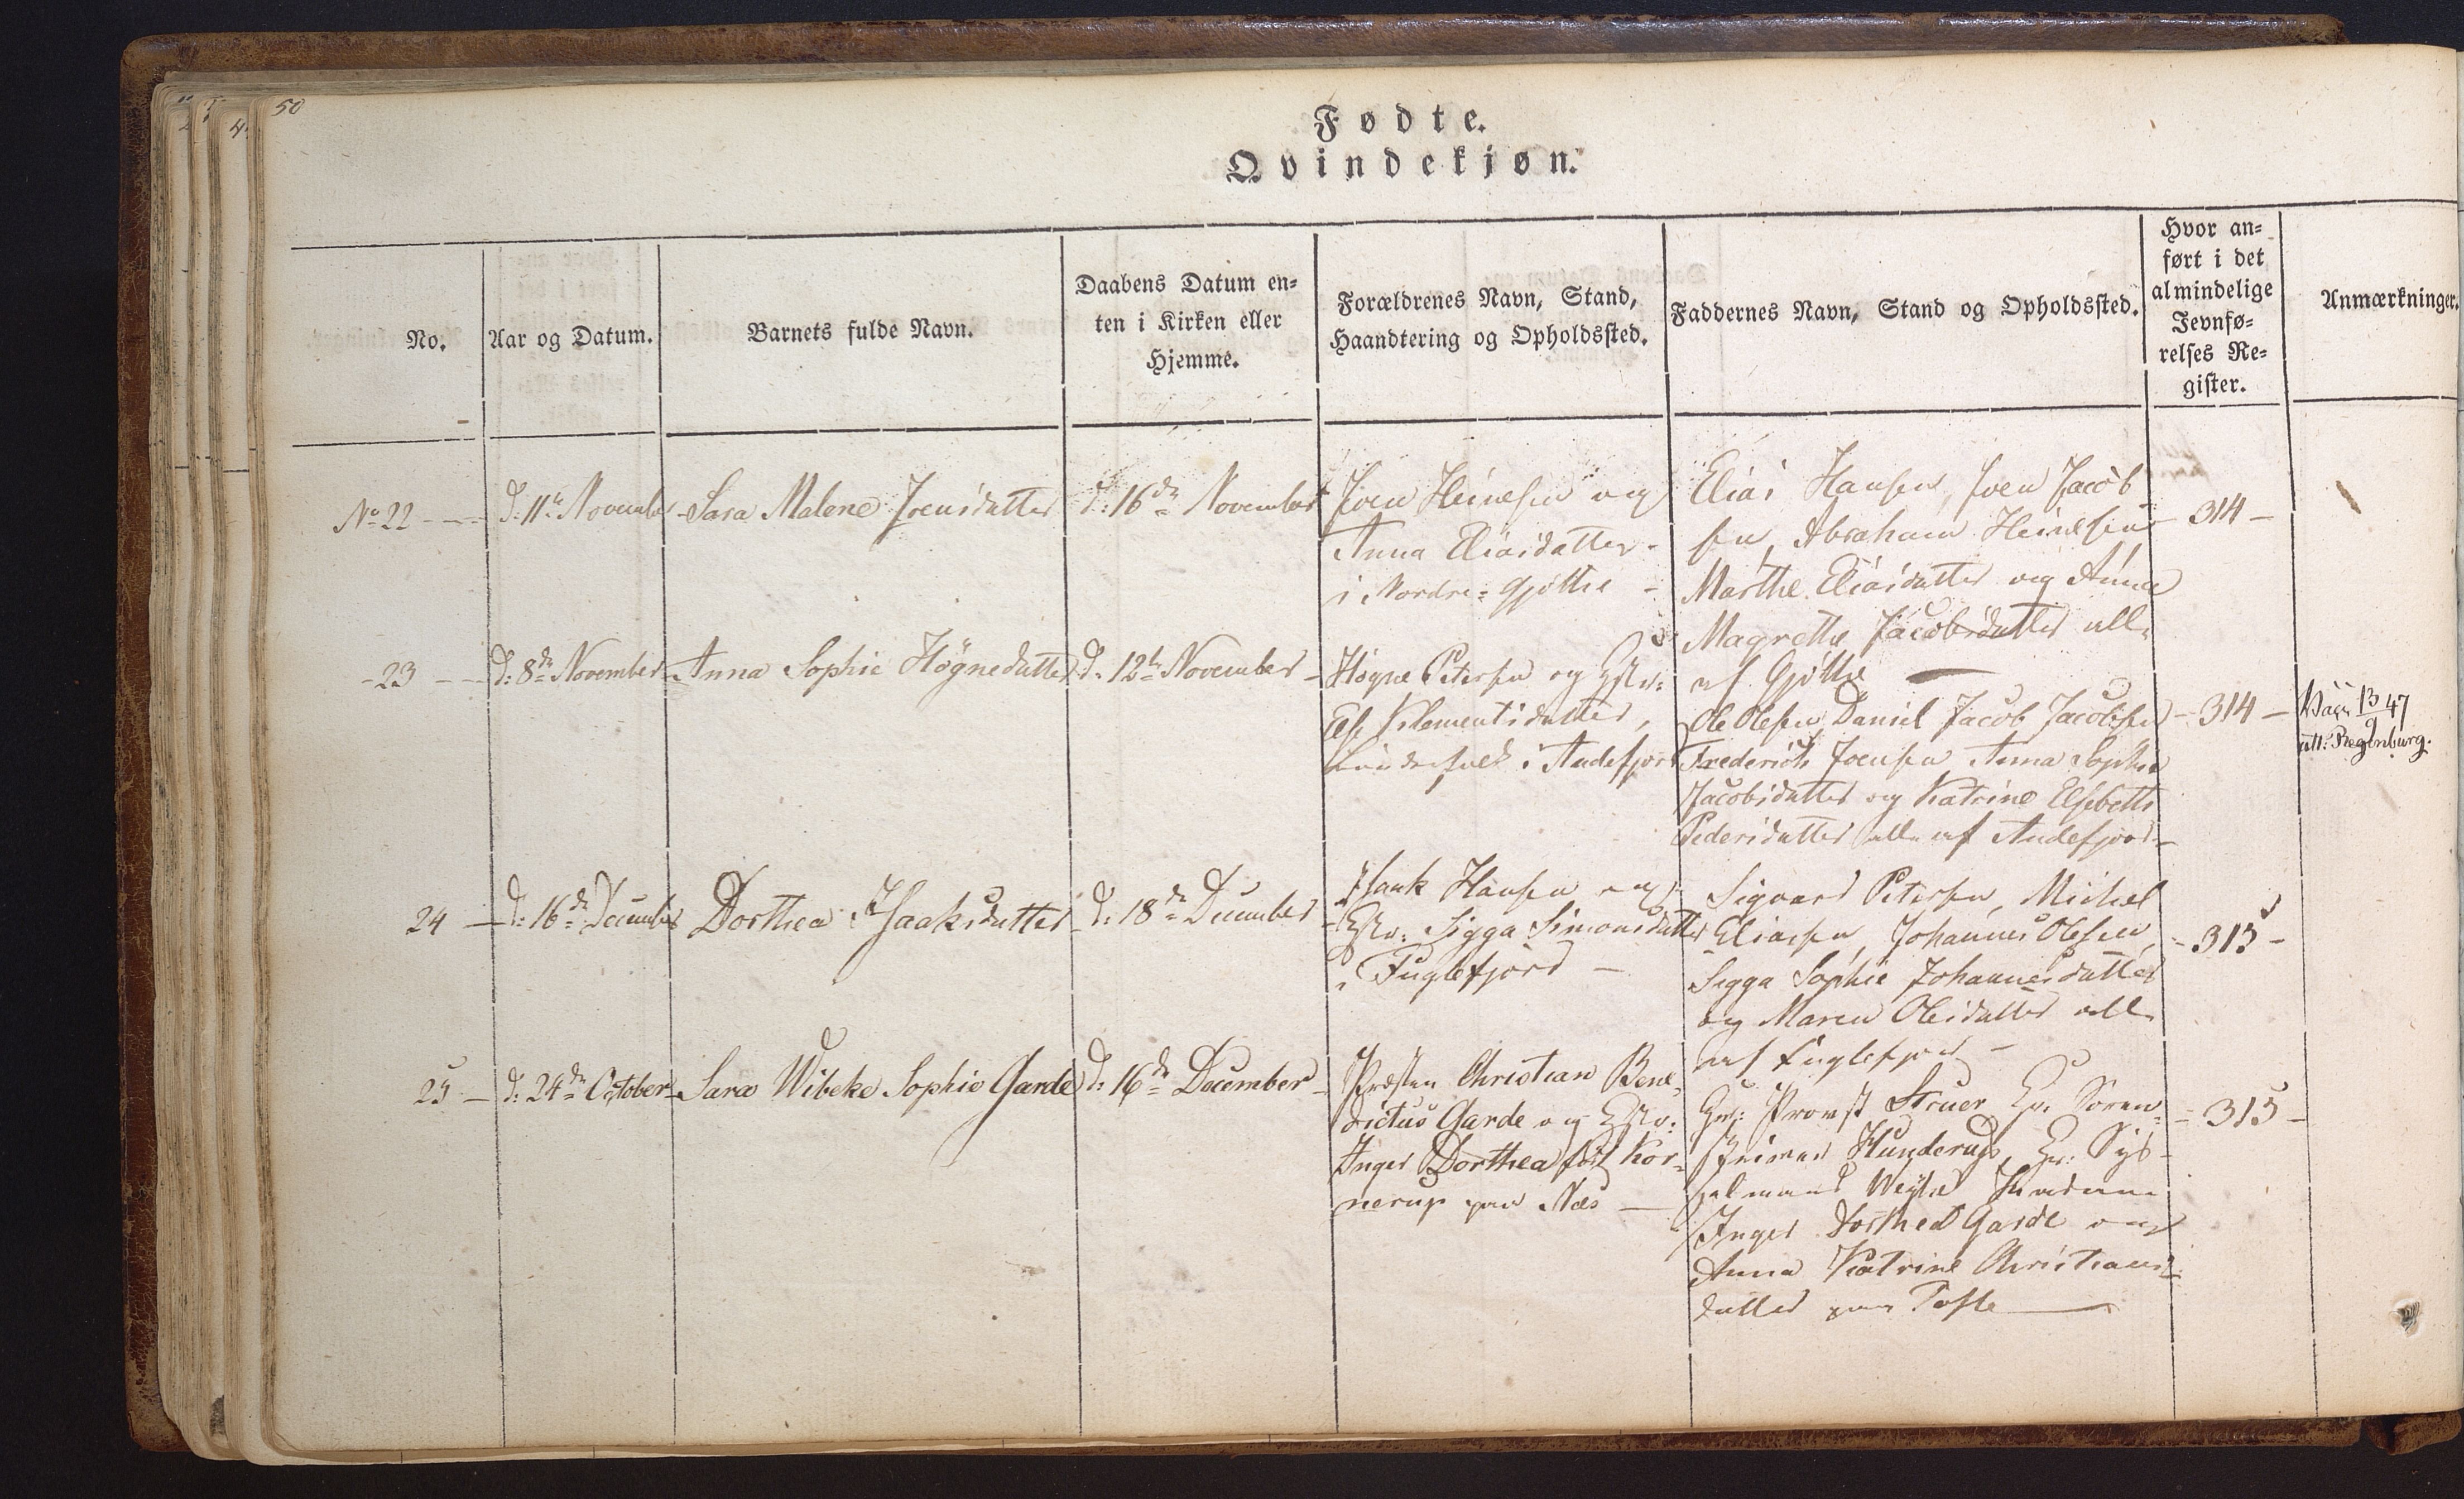 50
Fødte.
Qvindekjøn.
No.
Aar og Datum.
Barnets fulde Navn.
Daabens Datum en-
ten i Kirken eller
Hjemme.
Forældrenes Navn, Stand,
Haandtering og Opholdssted.
Faddernes Navn, Stand og Opholdssted.
Hvor an-
ført i det
almindelige
Jevnfø-
relses Re-
gister.
Anmærkninger.
No 22
d: 11te November
Sara Malene Joensdatter
d: 16de November
Joen Heinesen og
Anna Eliasdatter
i Nordre-Gjøthe
Elias Hansen, Joen Jacob
sen, Abraham Heinesen
Marthe Eliasdatter og Anna
Magrethe Jacobsdatter alle
af Gjøthe
314
23
d: 8de November
Anna Sophie Høgnedatter
d: 12te November
Høgne Petersen og Hstr:
Else Klementsdatter,
i Andefjord
Ole Olesen, Daniel Jacob Jacobsen
Frederich Joensen Anna Sophia
Jacobsdatter og Katrine Elsebeth
Pedersdatter alle af Andefjord
314
Vacc 13/9 47
att: Regenburg.
24
d: 16de December
Dorthea Isaaksdatter
d: 18de December
Isaak Hansen og
Hstr: Sigga Simonsdatter
i Fuglefjord
Sigvard Petersen, Michel
Eliasen, Johannes Olesen,
Sigga Sophie Johannesdatter
og Maren Olesdatter alle
af Fuglefjord
315
25
d: 24de October
Sara Wibeke Sophie Garde
d: 16de December
Præsten Christian Bene-
dictus Garde og Hstr:
Inger Dorthea født Kor-
nerup paa Næs
Hr: Provst Struer Hr. Soren-
skriver Hunderup, Hr: Sys-
selmand Weyhe Madame
Inger Dorthea Garde og
Anna Katrine Christians-
datter paa Tofte
315